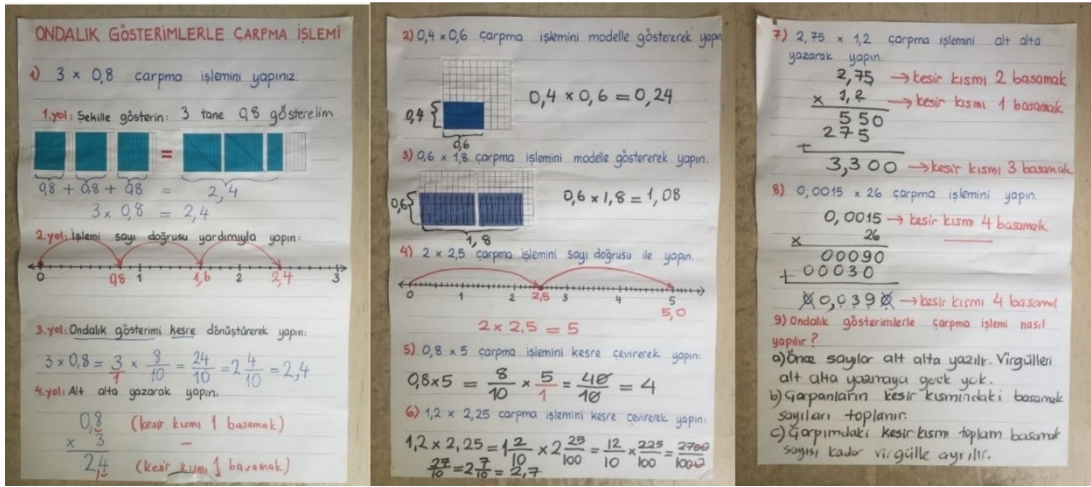 ONDALIK GÖSTERİMLERLE ÇARPMA İŞLEMİ
1) 3 x 0,8 çarpma işlemini yapınız.
1.yol: Şekille gösterin: 3 tane 0,8 gösterelim
=
0,8 + 0,8 + 0,8 = 2,4
3 x 0,8 = 2,4
2.yol: İşlemi sayı doğrusu yardımıyla yapın:
0 0,8 1 1,6 2 2,4 3
3.yol: Ondalık gösterimi kesre dönüştürerek yapın:
3 x 0,8 = 3/1 x 8/10 = 24/10 = 2 4/10 = 2,4
4.yol: Alt alta yazarak yapın:
0,8 (kesir kısmı 1 basamak)
x 3 —
2,4 (kesir kısmı 1 basamak)
2) 0,4 x 0,6 çarpma işlemini modelle göstererek yapın
0,4 x 0,6 = 0,24
0,4
0,6
3) 0,6 x 1,8 çarpma işlemini modelle göstererek yapın.
0,6 0,6 x 1,8 = 1,08
1,8
4) 2 x 2,5 çarpma işlemini sayı doğrusu ile yapın.
0 1 2 2,5 3 4 5
5,0
2 x 2,5 = 5
5) 0,8 x 5 çarpma işlemini kesre çevirerek yapın:
0,8x5 = 8/10 x 5/1 = 40/10 = 4
6) 1,2 x 2,25 çarpma işlemini kesre çevirerek yapın:
1,2 x 2,25 = 1 2/10 x 2 25/100 = 12/10 x 225/100 = 2700/1000
27/10 = 2 7/10 = 2,7
7) 2,75 x 1,2 çarpma işlemini alt alta
yazarak yapın.
2,75 → kesir kısmı 2 basamak
x 1,2 → kesir kısmı 1 basamak
550
275
+
3,300 → kesir kısmı 3 basamak
8) 0,0015 x 26 çarpma işlemini yapın.
0,0015 → kesir kısmı 4 basamak
x 26 —
00090
+ 00030
00,0390 → kesir kısmı 4 basamak
9) Ondalık gösterimlerle çarpma işlemi nasıl
yapılır?
a) Önce sayılar alt alta yazılır. Virgülleri
alt alta yazmaya gerek yok.
b) Çarpanların kesir kısmındaki basamak
sayıları toplanır.
c) Çarpımdaki kesir kısmı toplam basamak
sayısı kadar virgülle ayrılır.